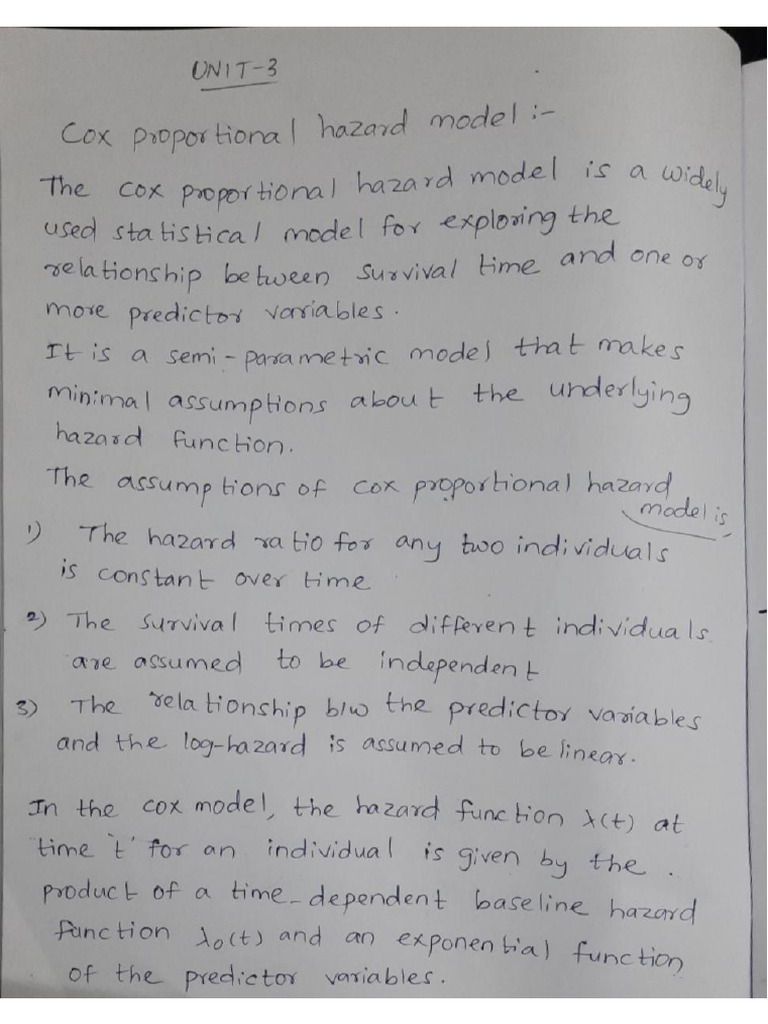 UNIT-3
Cox proportional hazard model :-
The cox proportional hazard model is a widely
used statistical model for exploring the
relationship between survival time and one or
more predictor variables.
It is a semi-parametric model that makes
minimal assumptions about the underlying
hazard function.
The assumptions of cox proportional hazard
model is
1) The hazard ratio for any two individuals
is constant over time
2) The survival times of different individuals
are assumed to be independent
3) The relationship b/w the predictor variables
and the log-hazard is assumed to be linear.
In the cox model, the hazard function λ(t) at
time 't' for an individual is given by the
product of a time-dependent baseline hazard
function λ₀(t) and an exponential function
of the predictor variables.